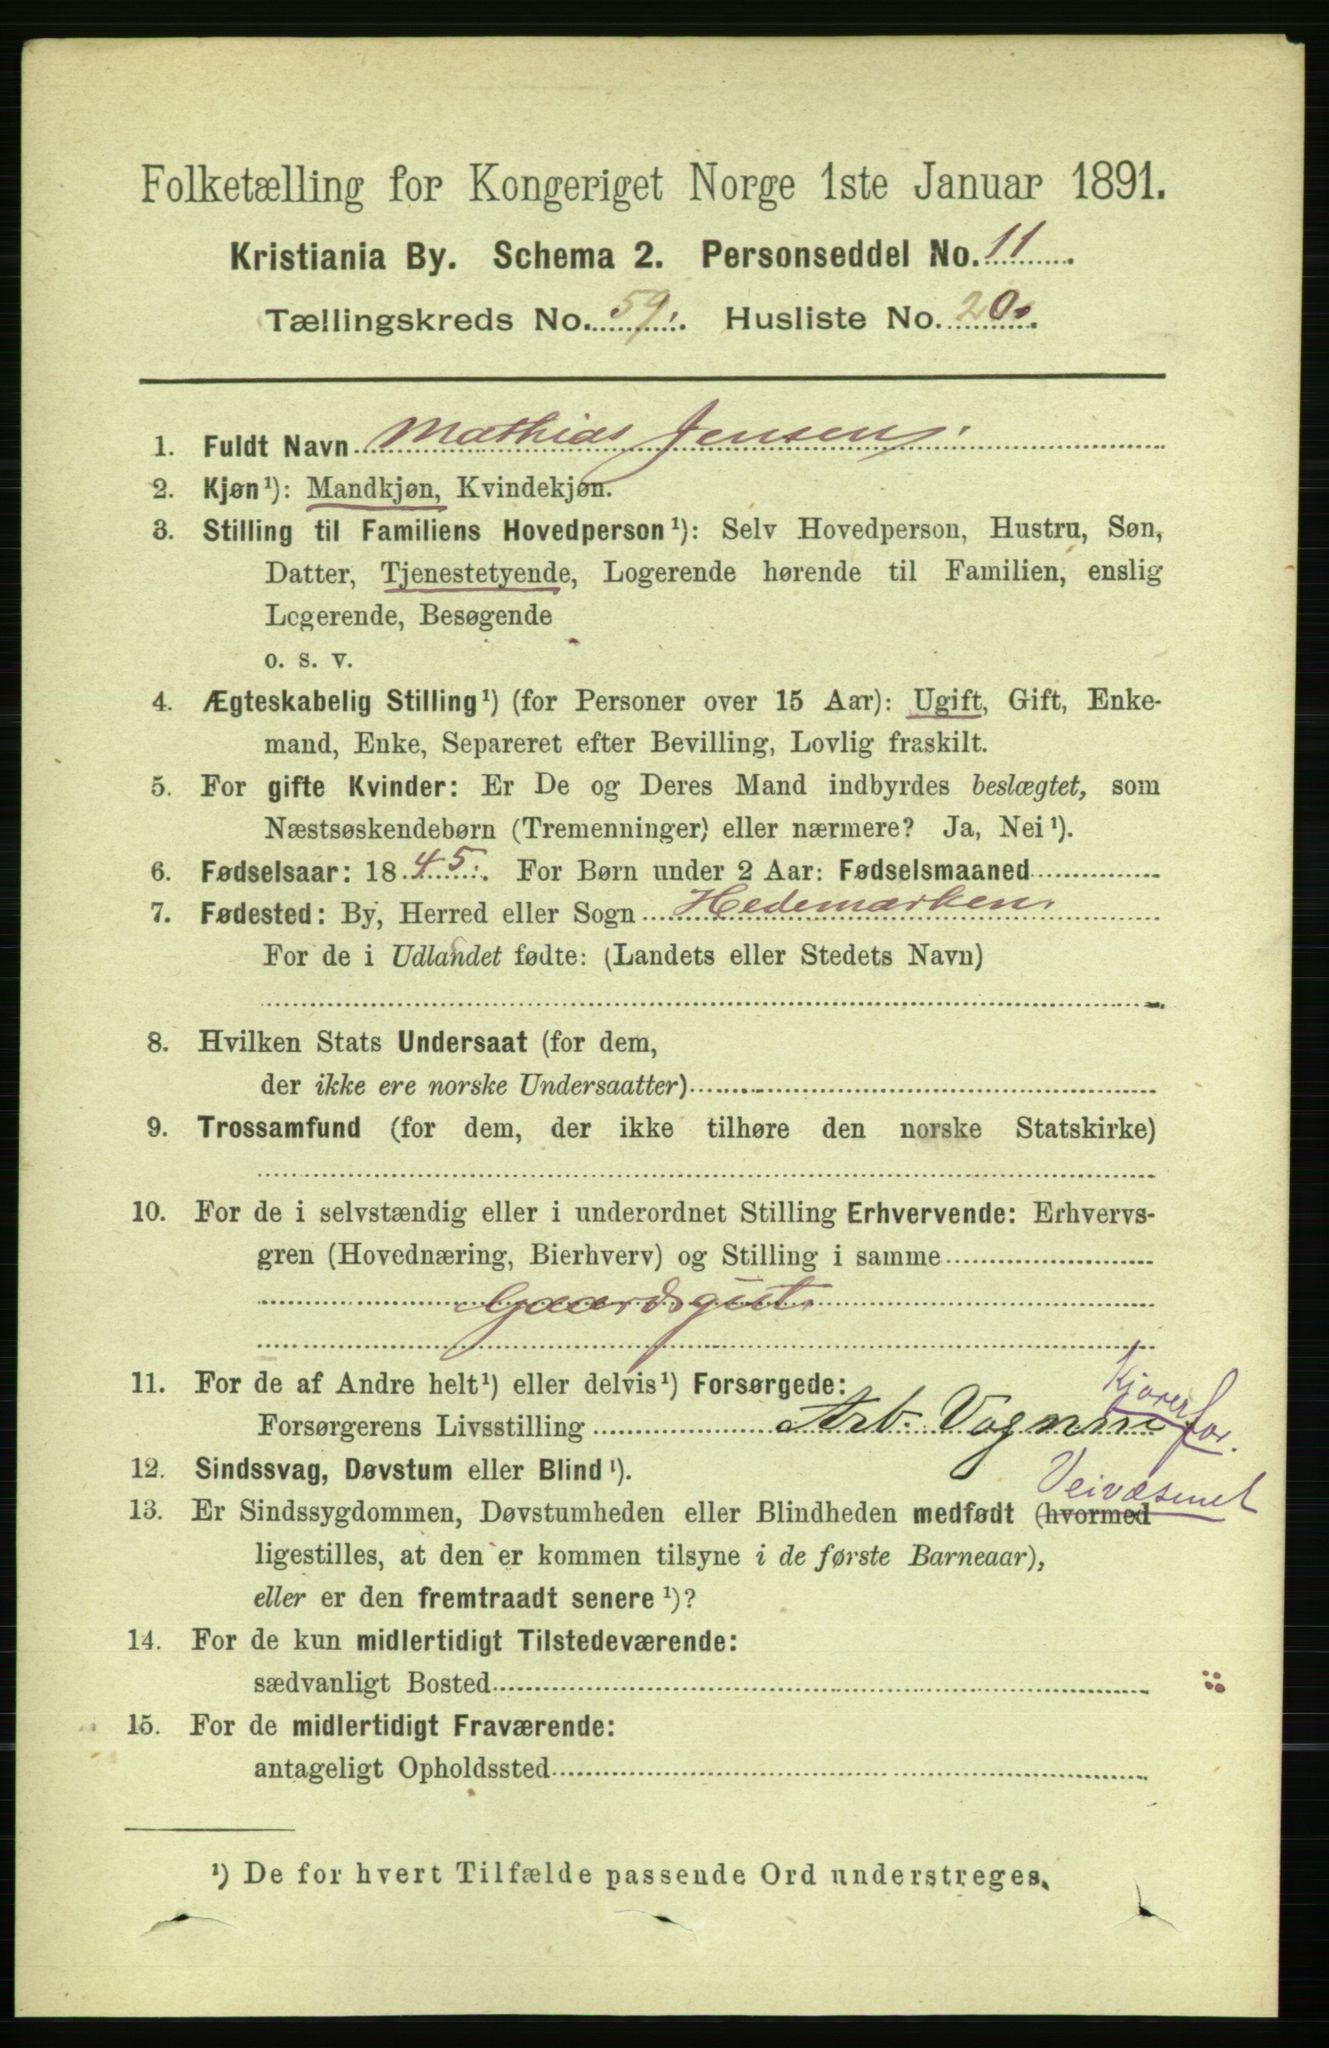 Folketælling for Kongeriget Norge 1ste Januar 1891.
Kristiania By. Schema 2. Personseddel No. 11
Tællingskreds No. 59. Husliste No. 20.
1. Fuldt Navn Mathias Jensen.
2. Kjøn¹): Mandkjøn, Kvindekjøn.
3. Stilling til Familiens Hovedperson¹): Selv Hovedperson, Hustru, Søn,
Datter, Tjenestetyende, Logerende hørende til Familien, enslig
Logerende, Besøgende
o. s. v.
4. Ægteskabelig Stilling¹) (for Personer over 15 Aar): Ugift, Gift, Enke-
mand, Enke, Separeret efter Bevilling, Lovlig fraskilt.
5. For gifte Kvinder: Er De og Deres Mand indbyrdes beslægtet, som
Næstsøskendebørn (Tremenninger) eller nærmere? Ja, Nei¹).
6. Fødselsaar: 1845. For Børn under 2 Aar: Fødselsmaaned
7. Fødested: By, Herred eller Sogn Hedemarken.
For de i Udlandet fødte: (Landets eller Stedets Navn)
8. Hvilken Stats Undersaat (for dem,
der ikke ere norske Undersaatter)
9. Trossamfund (for dem, der ikke tilhøre den norske Statskirke)
10. For de i selvstændig eller i underordnet Stilling Erhvervende: Erhvervs-
gren (Hovednæring, Bierhverv) og Stilling i samme
Gaardsgut.
11. For de af Andre helt¹) eller delvis¹) Forsørgede: Kjører
Forsørgerens Livsstilling Arb. for.
12. Sindssvag, Døvstum eller Blind¹). Veivæsenet
13. Er Sindssygdommen, Døvstumheden eller Blindheden medfødt (hvormed
ligestilles, at den er kommen tilsyne i de første Barneaar),
eller er den fremtraadt senere¹)?
14. For de kun midlertidigt Tilstedeværende:
sædvanligt Bosted
15. For de midlertidigt Fraværende:
antageligt Opholdssted
¹) De for hvert Tilfælde passende Ord understreges.